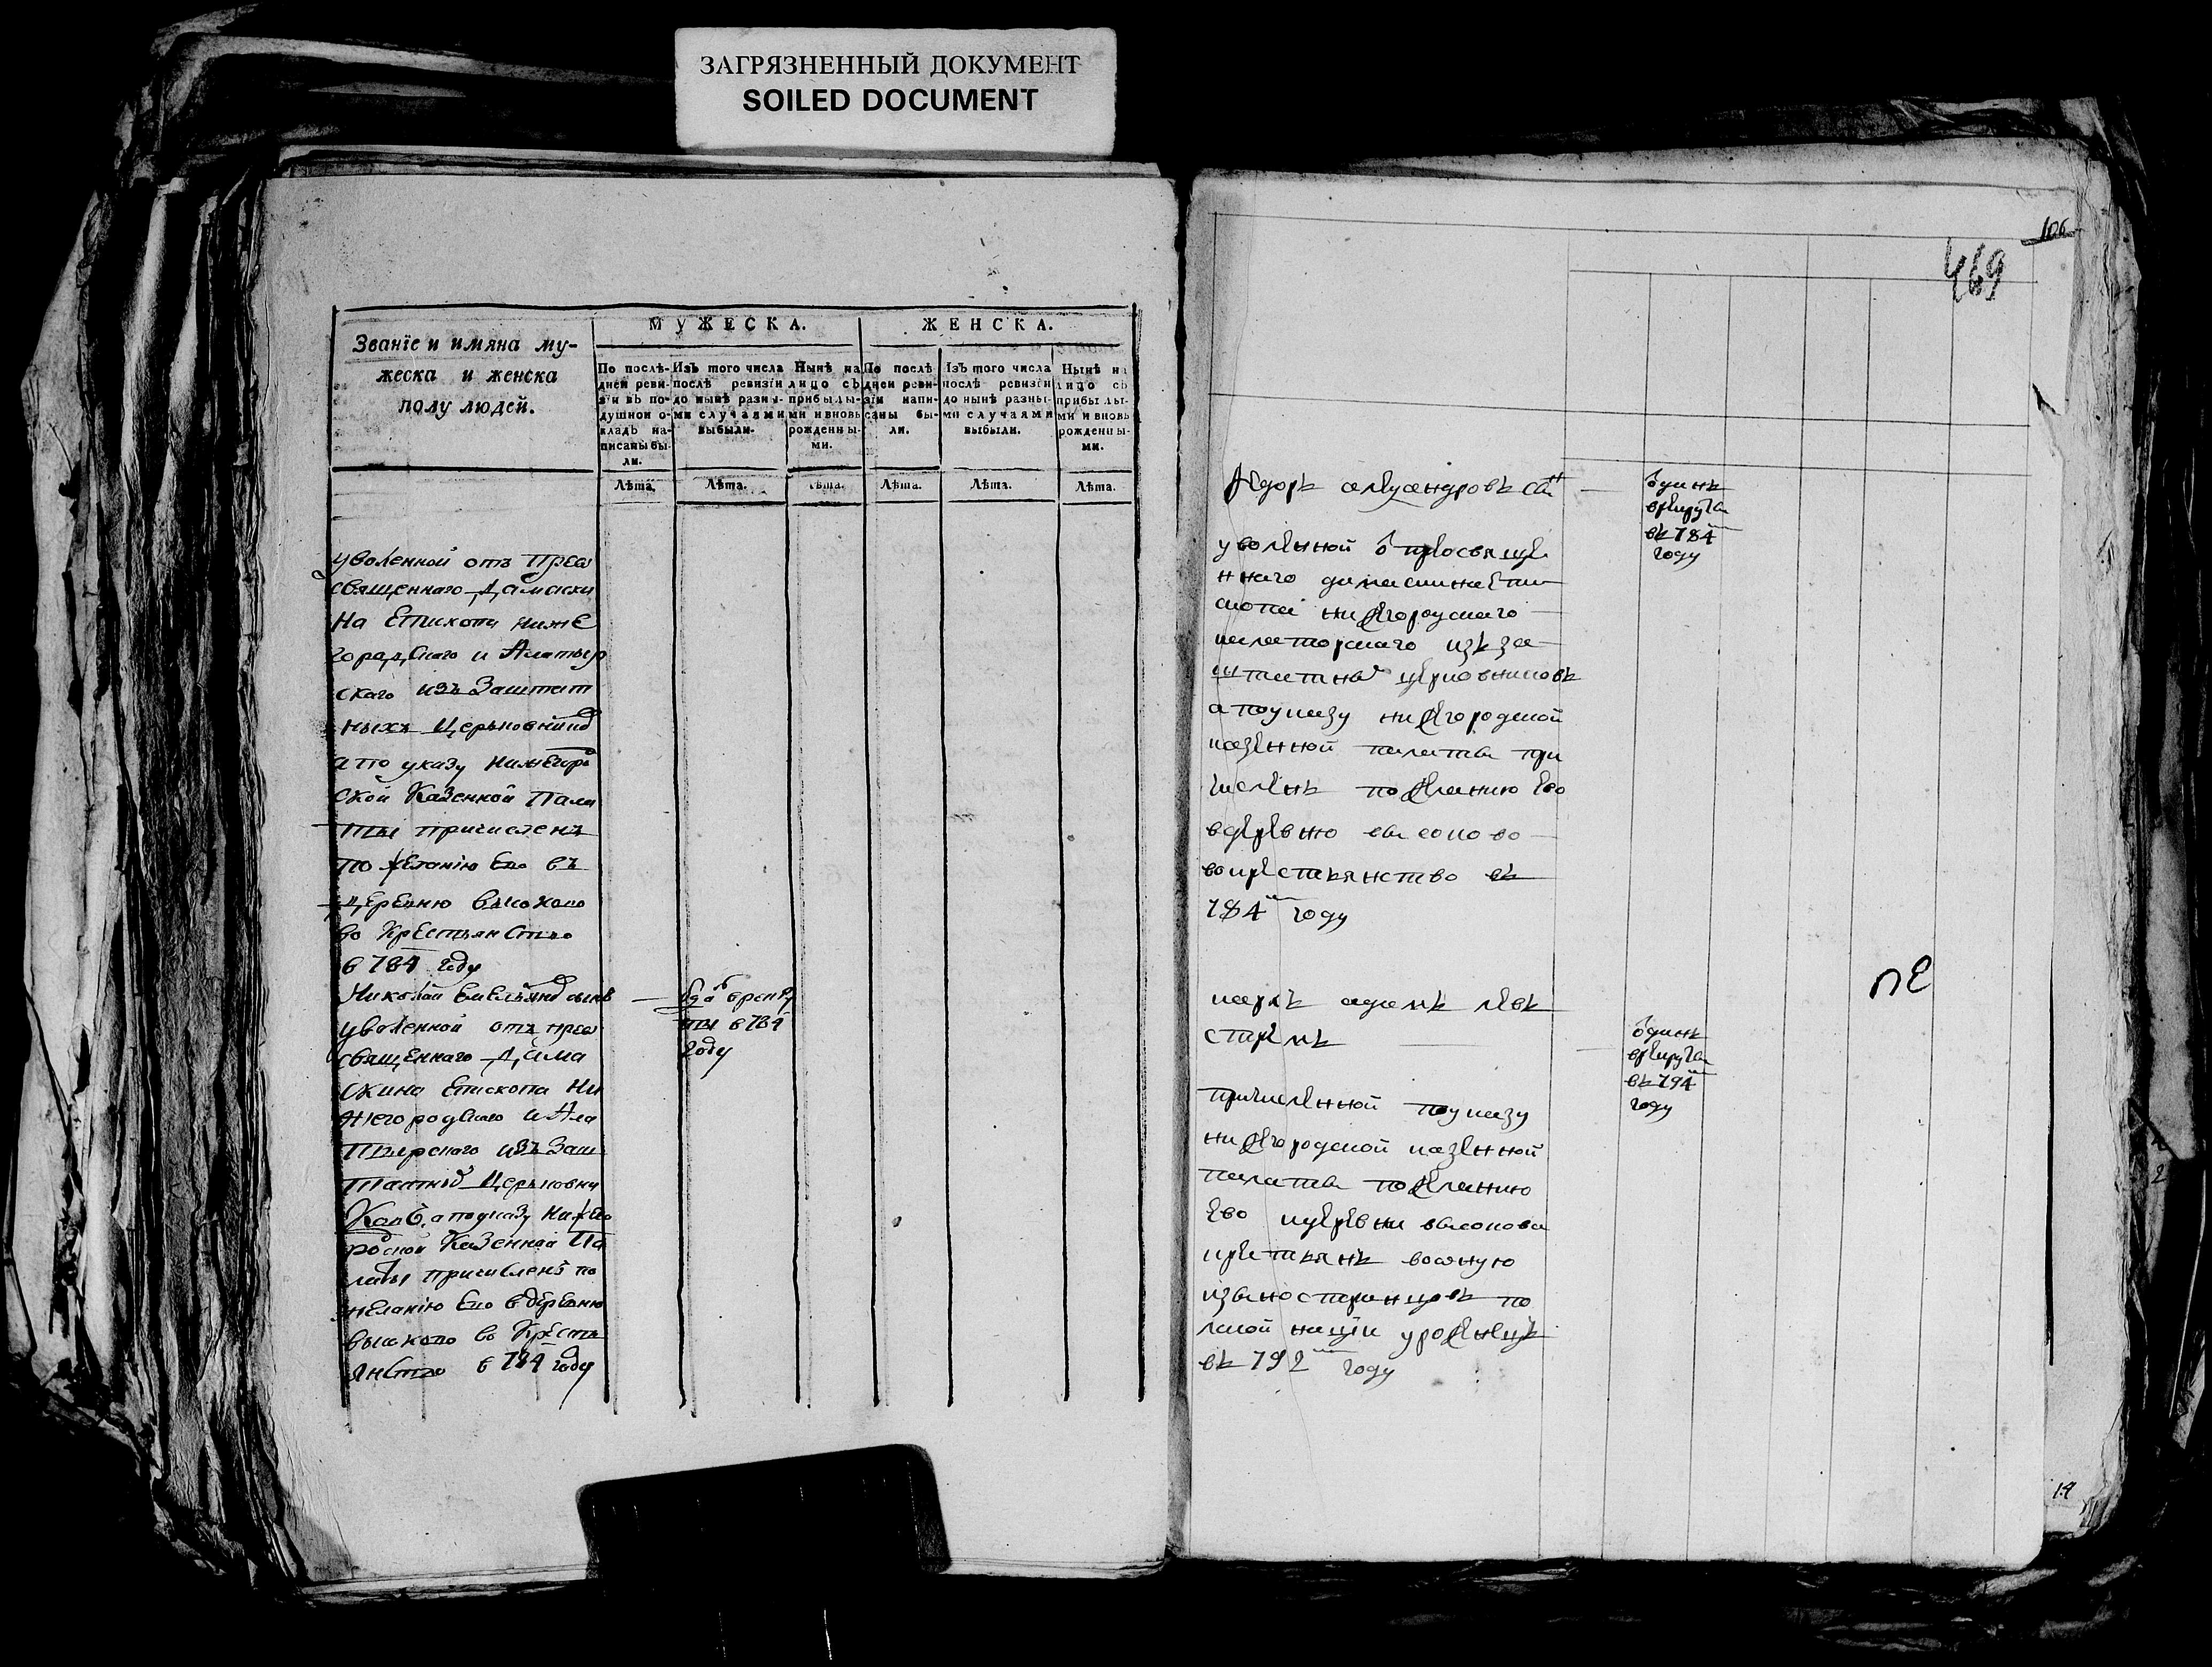 ЗАГРЯЗНЕННЫЙ ДОКУМЕНТ
SOILED DOCUMENT
Званїе и имяна му-
жеска и женска
полу людей.
МУЖЕСКА.
ЖЕНСКА.
По послѣ-
дней реви-
зїи въ по-
душной о-
кладъ на-
писаны бы-
ли.
Изъ того числа
послѣ ревизїи
до нынѣ разны-
ми случаями
выбыли.
Нынѣ на
лицо съ
прибылы-
ми и вновь
рожденны-
ми.
По послѣ
дней реви-
зїи напи-
саны бы-
ли.
Изъ того числа
послѣ ревизїи
до нынѣ разны-
ми случаями
выбыли.
Нынѣ на
лицо съ
прибылы-
ми и вновь
рожденны-
ми.
Лѣта.
Лѣта.
Лѣта.
Лѣта.
Лѣта.
Лѣта.
уволенной отъ Прео
священнаго Дамаски
на Епископа Ниже
городскаго и Алатыр
скаго изъ Заштат
ныхъ Церьковниковъ
а по указу Нижегоро
ской Казенной Пала
ты причисленъ
по желанїю Ево въ
деревню Высоково
во Крестьянство
в 784 году
Николай Емельяновъ сынъ
уволенной отъ прео
священнаго Дама
скина Епископа Ни
жегородскаго и Ала
тырскаго изъ Заш
татныхъ Церьковни
ковъ, а по указу Нижего
родской Казенной Па
латы причисленъ по
желанїю Ево в деревню
высоково во Кресть
янство в 784 году
отдан в рекру
ты в 784
году
106
469
Федоръ александровъ сынъ
одинъ
в рекруты
въ 784
году
уволенной о преосвяще
ннаго дамаскина епи
скопа нижегородскаго
и алаторскаго изъ за
штатных церковниковъ
а по указу нижегородской
казенной палаты при
численъ по желанию ево
в деревню высоково
во крестьянство въ
784 году
карлъ адамъ левъ
стремъ
одинъ
в рекруты
въ 794
году
причисленной по указу
нижегородской казенной
палаты по желанию
ево деревни высокова
крестьянъ
по
лской нацїи уроженцъ
въ 792 году
ПЕ
14
2